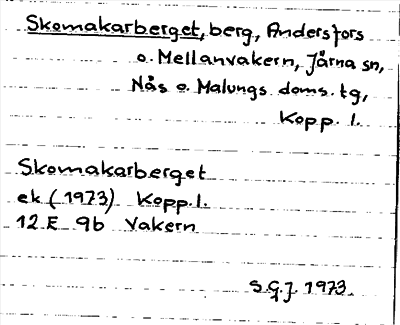 Skomakarberget, berg, Andersfors
o. Mellanvakern, Järna sn,
Nås o. Malungs doms. tg,
Kopp. l.
Skomakarberget
ek (1973) Kopp. l.
12 E 9b Vakern
S.G.J. 1973.